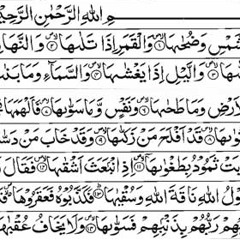 مِ اللهِ الرَّحْمٰنِ الرَّحِيْ
شَمْسِ وَضُحٰىهَا ۝۱ وَالْقَمَرِ اِذَا تَلٰىهَا ۝۲ وَالنَّهَا
ىهَا ۝۳ وَالَّيْلِ اِذَا يَغْشٰىهَا ۝۴ وَالسَّمَآءِ وَمَا بَنٰ
رْضِ وَمَا طَحٰىهَا ۝۶ وَنَفْسٍ وَّمَا سَوّٰىهَا ۝۷ فَاَلْهَمَهَا
وٰىهَا ۝۸ قَدْ اَفْلَحَ مَنْ زَكّٰىهَا ۝۹ وَقَدْ خَابَ مَنْ دَسّٰ
بَتْ ثَمُوْدُ بِطَغْوٰىهَا ۝۱۱ اِذِ انْۢبَعَثَ اَشْقٰىهَا ۝۱۲ فَقَالَ
وْلُ اللهِ نَاقَةَ اللهِ وَسُقْيٰهَا ۝۱۳ فَكَذَّبُوْهُ فَعَقَرُوْهَا
هِمْ رَبُّهُمْ بِذَنْۢبِهِمْ فَسَوّٰىهَا ۝۱۴ وَلَا يَخَافُ عُقْبٰهَا